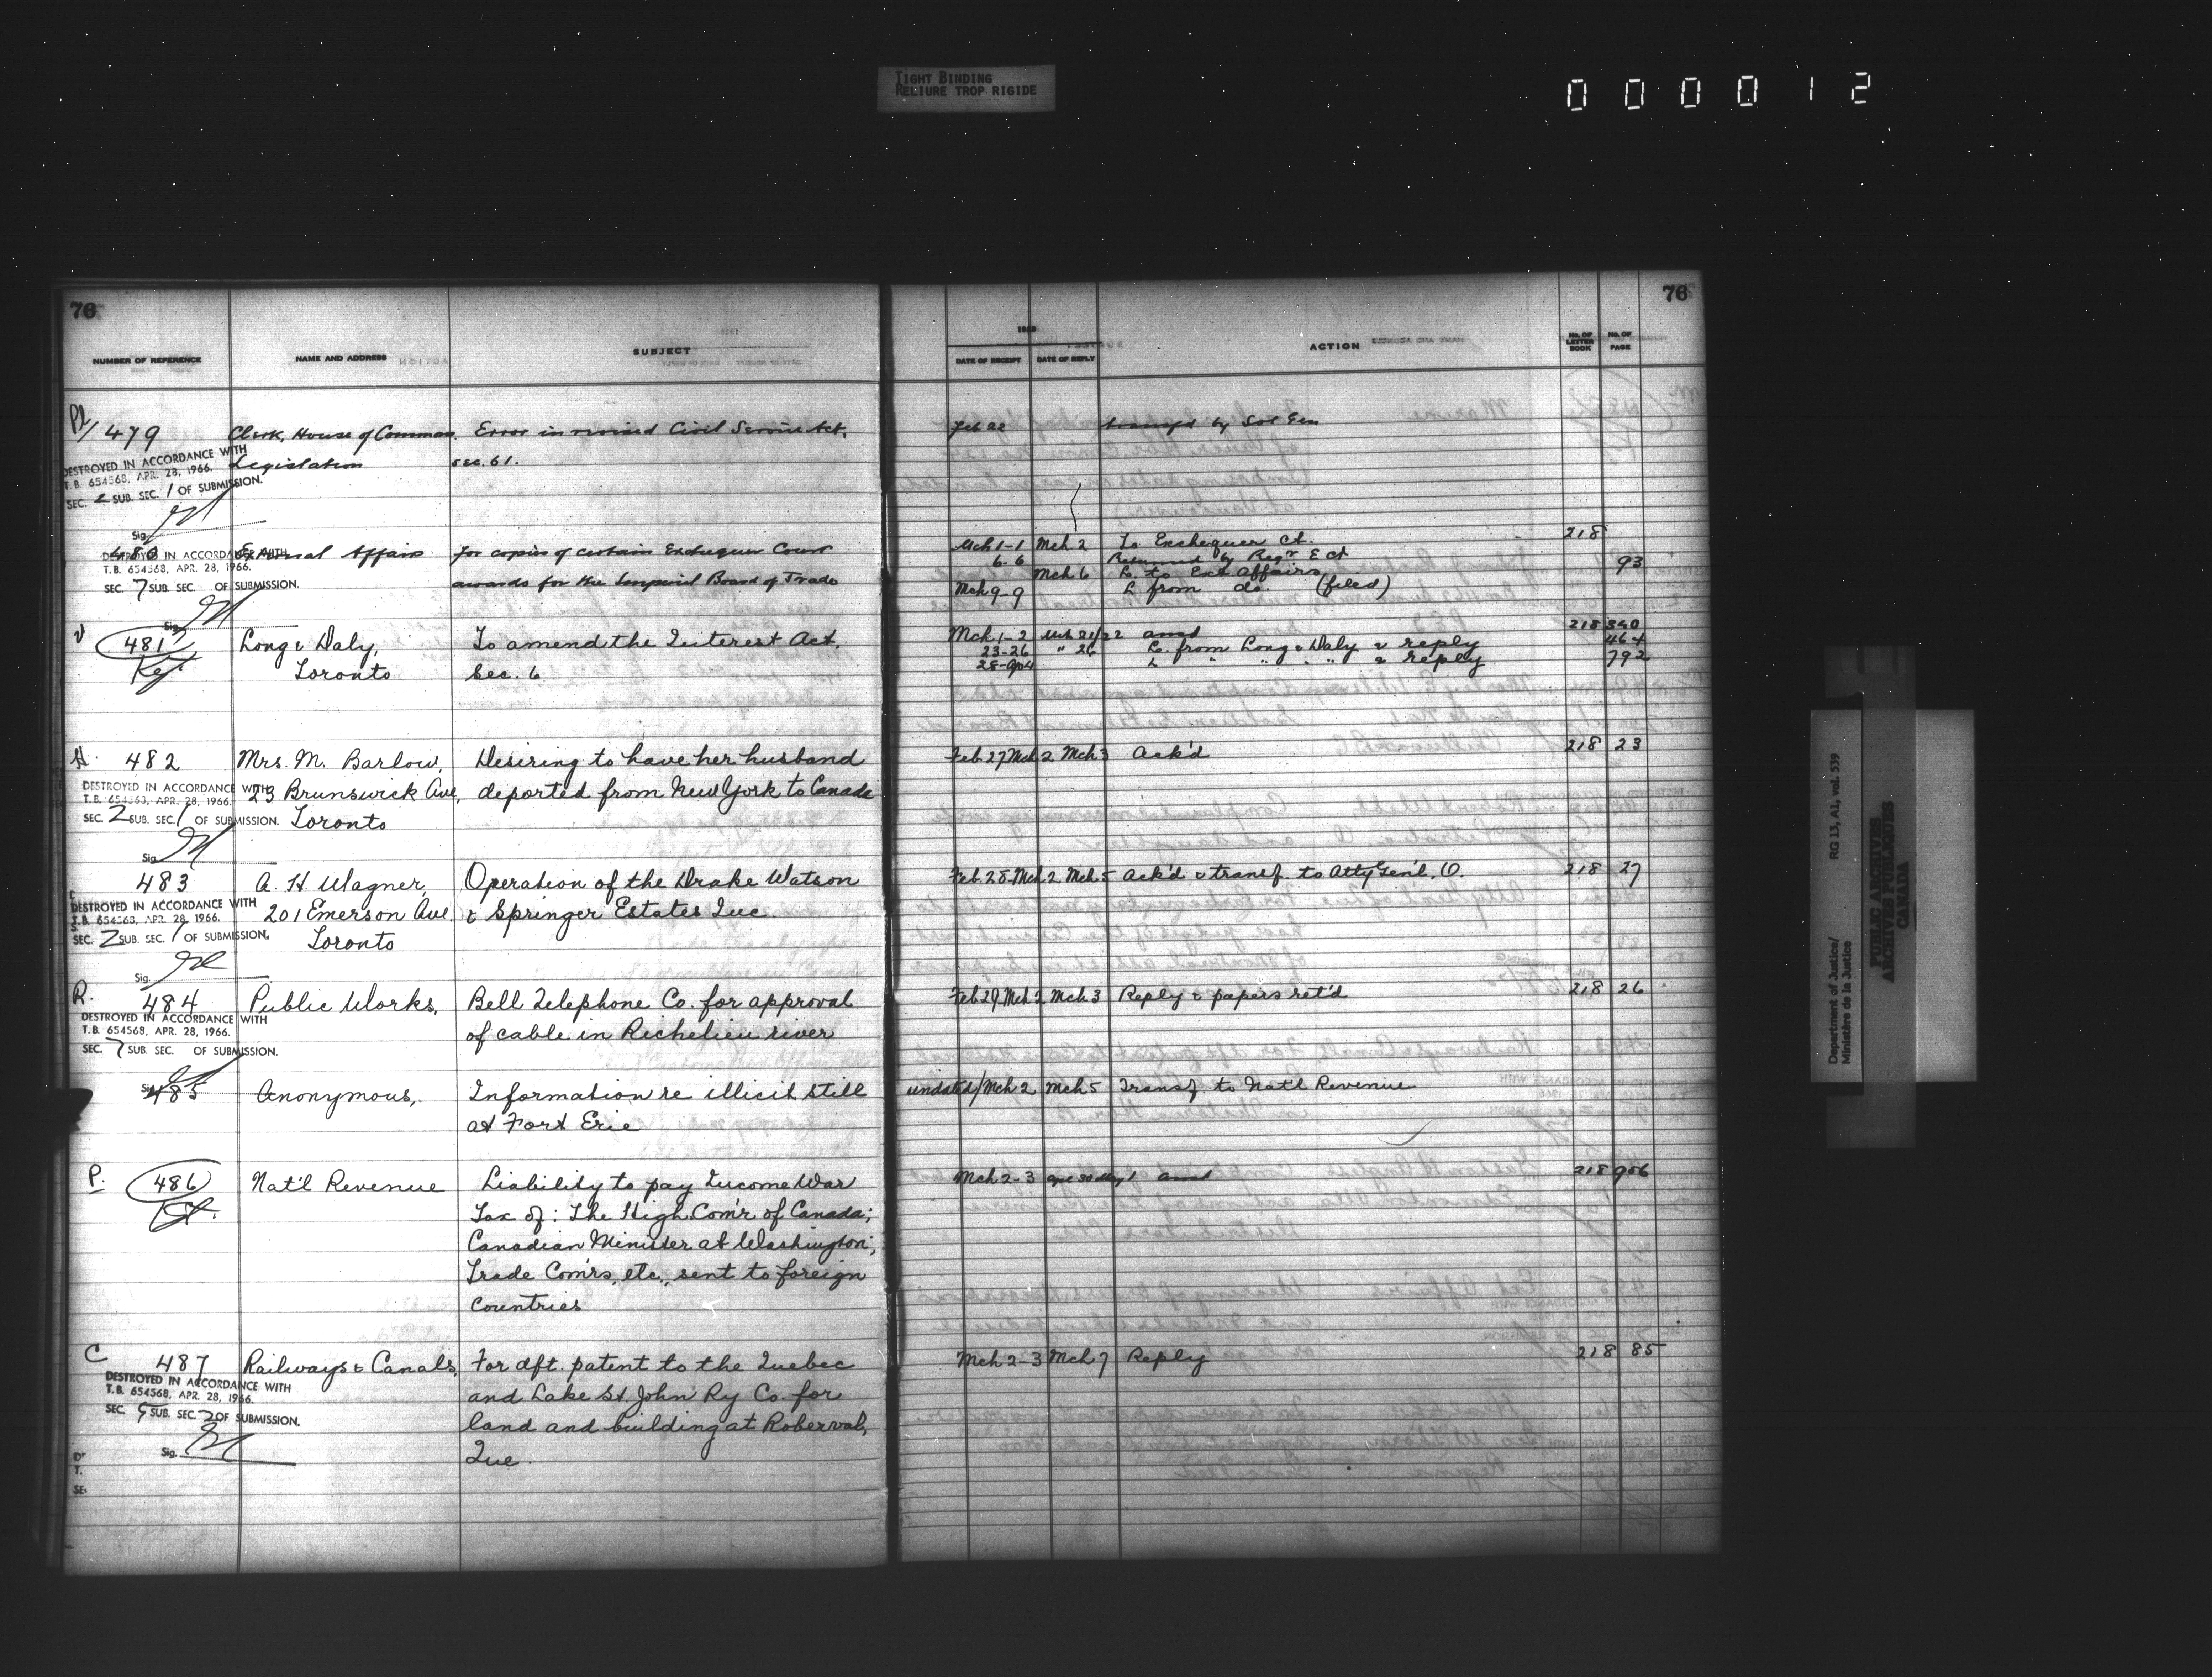 TIGHT BINDING
RELIURE TROP RIGIDE
000012
76
NUMBER OF REFERENCE NAME AND ADDRESS SUBJECT
DATE OF RECEIPT DATE OF REPLY ACTION No. OF LETTER BOOK No. OF PAGE
76
479 Clerk, House of Commons. Error in revised Civil Service Act, Feb 22 transf'd by Sol Gen
DESTROYED IN ACCORDANCE WITH Legislation sec. 61.
T.B. 654568, APR. 28, 1966.
SEC. 2 SUB. SEC. 1 OF SUBMISSION.
Sig.
480 External Affairs For copies of certain Exchequer Court Mch 1-1 Mch 2 To Exchequer Ct. 218
DESTROYED IN ACCORDANCE WITH
T.B. 654568, APR. 28, 1966. 6-6 Returned by Regr E Ct
SEC. 7 SUB. SEC. OF SUBMISSION. awards for the Imperial Board of Trade Mch 6 L. to Ext Affairs 93
Mch 9-9 L from do. (filed)
Sig.
V 481 Long & Daly, To amend the Interest Act, Mch 1-2 Mch 21/22 218 340
23-26 " 26 L. from Long & Daly & reply 464
Toronto Sec. 6 28-Ap4 L " " " " & reply 792
H. 482 Mrs. M. Barlow, Desiring to have her husband Feb 27 Mch 2 Mch 3 Ack'd 218 23
DESTROYED IN ACCORDANCE WITH 23 Brunswick Ave, deported from New York to Canada
T.B. 654568, APR. 28, 1966.
SEC. 2 SUB. SEC. 1 OF SUBMISSION. Toronto
Sig.
483 A. H. Wagner, Operation of the Drake Watson Feb. 28. Mch 2 Mch. 5 Ack'd & transf. to Atty Gen'l, O. 218 27
DESTROYED IN ACCORDANCE WITH 201 Emerson Ave. & Springer Estates Inc.
T.B. 654568, APR. 28, 1966.
SEC. 2 SUB. SEC. 1 OF SUBMISSION. Toronto
Sig.
R. 484 Public Works, Bell Telephone Co. for approval Feb 29 Mch 2 Mch. 3 Reply & papers ret'd 218 26
DESTROYED IN ACCORDANCE WITH
T.B. 654568, APR. 28, 1966. of cable in Richelieu river
SEC. 7 SUB. SEC. OF SUBMISSION.
Sig.
485 Anonymous, Information re illicit still undated/Mch 2 Mch 5 Transf. to Nat'l Revenue
at Fort Erie
P. 486 Nat'l Revenue Liability to pay Income War Mch 2-3 Apr 30 May 1 218 906
Tax of: The High Com'r. of Canada;
Canadian Minister at Washington;
Trade Com'rs, etc., sent to foreign
countries
C 487 Railways & Canals, For dft. patent to the Quebec Mch 2-3 Mch 7 Reply 218 85
DESTROYED IN ACCORDANCE WITH
T.B. 654568, APR. 28, 1966. and Lake St. John Ry Co. for
SEC. 5 SUB. SEC. 2 OF SUBMISSION. land and building at Roberval,
Sig. Que.
Department of Justice/ RG 13, A1, vol. 539
Ministère de la Justice
PUBLIC ARCHIVES
ARCHIVES PUBLIQUES
CANADA